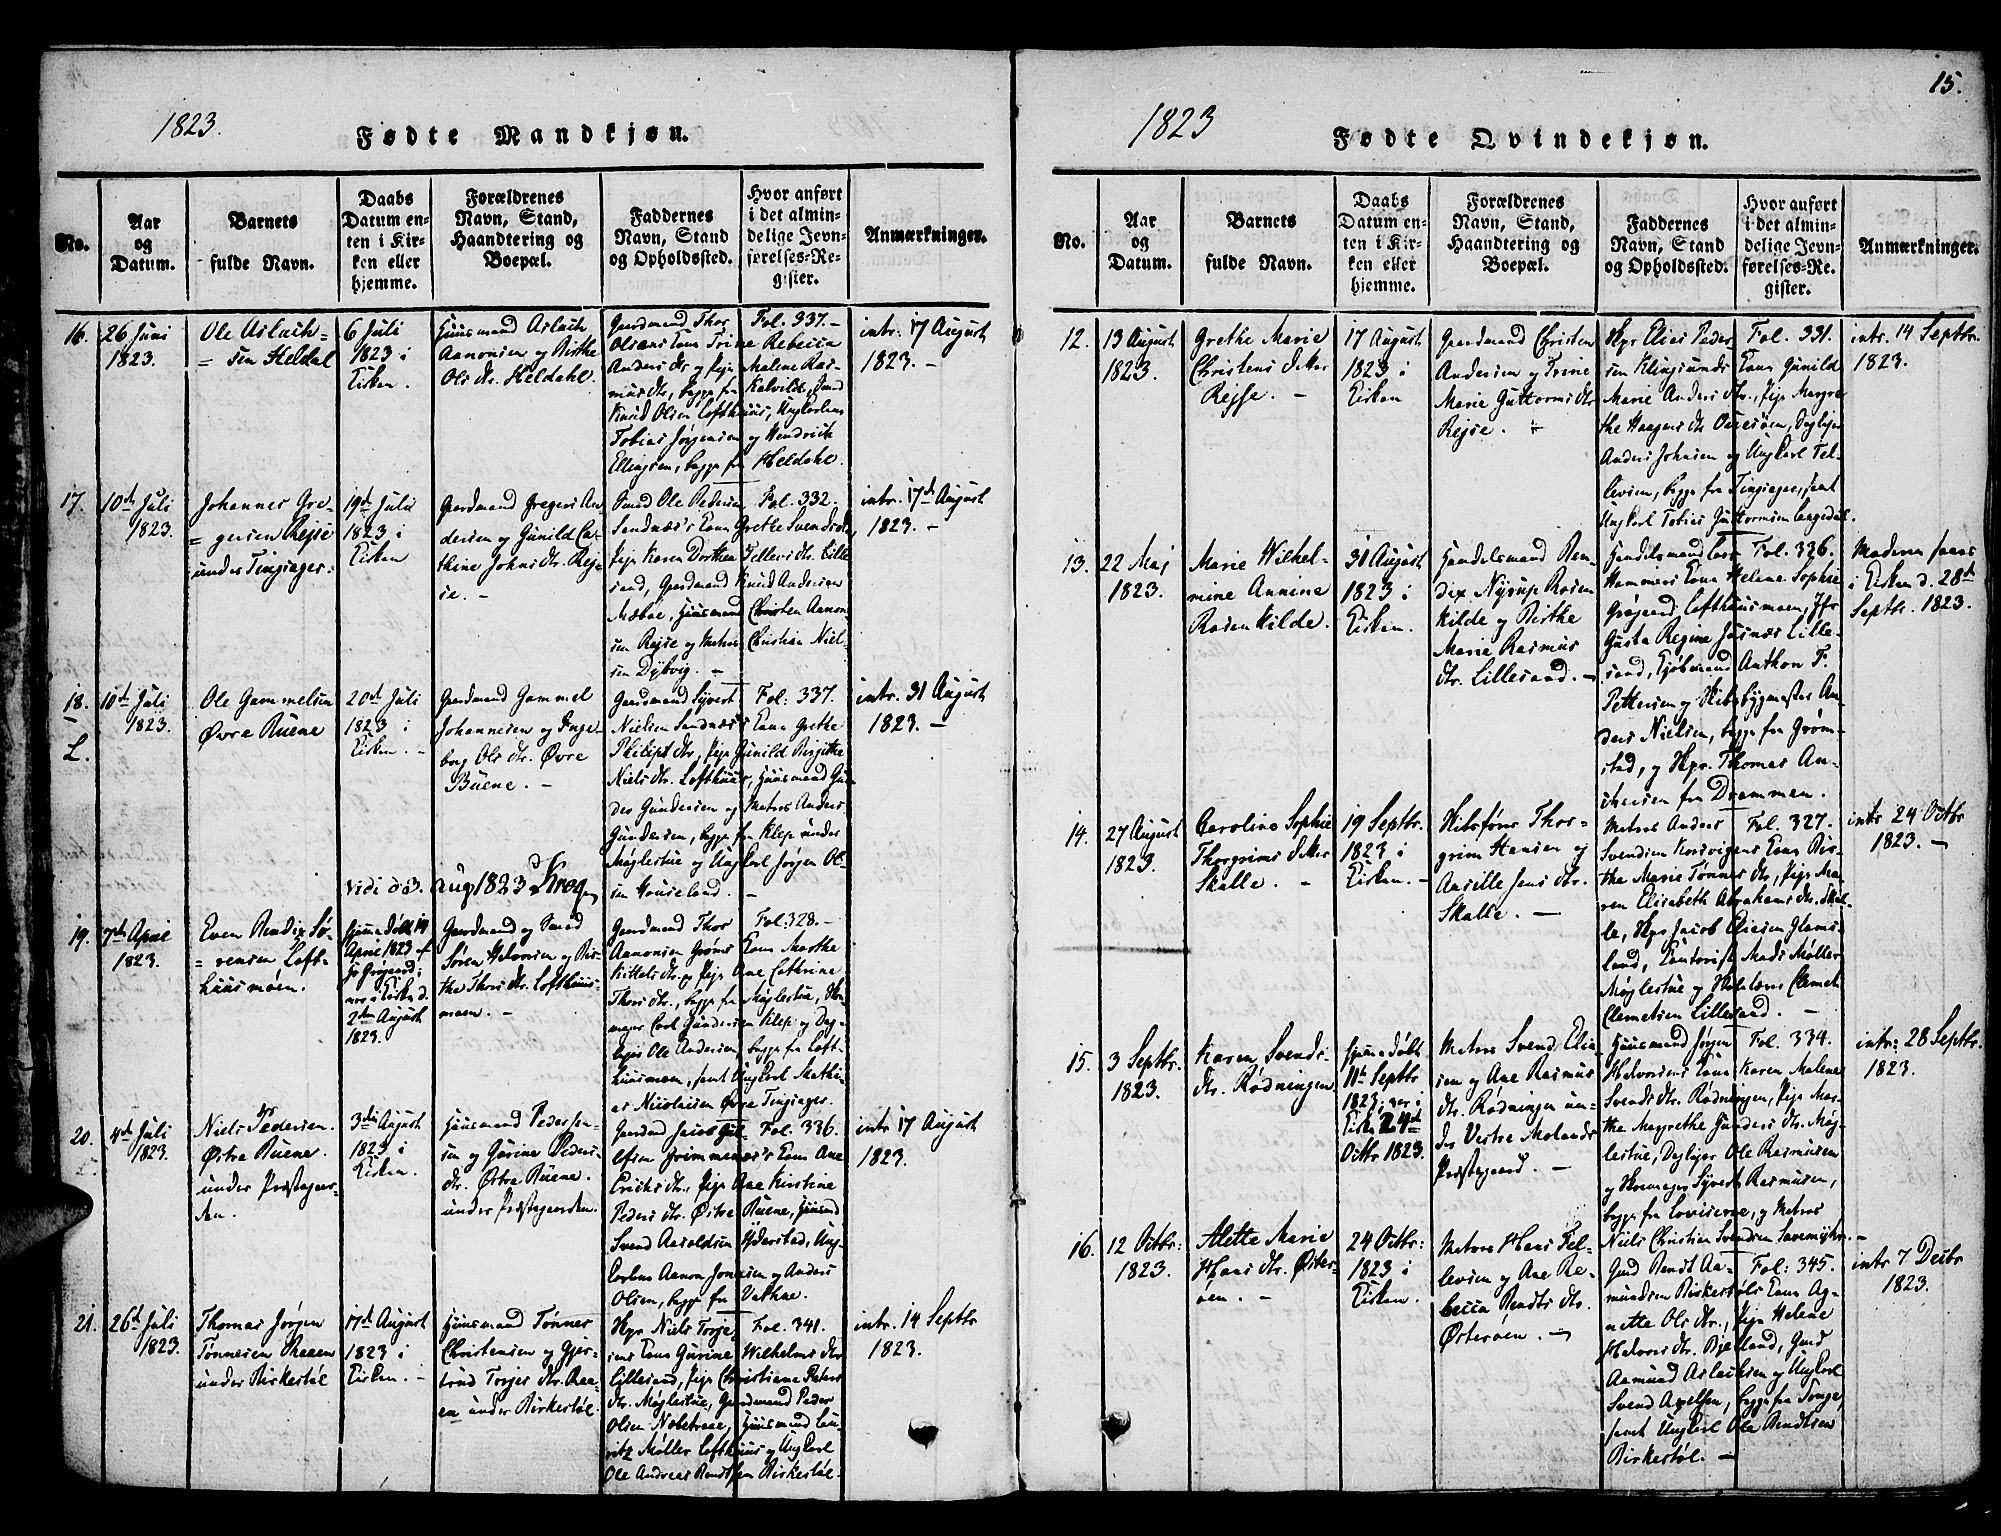 15.
1823.
Fødte Mandkjøn.
No.
Aar
og
Datum.
Barnets
fulde Navn.
Daabs
Datum en-
ten i Kir-
ken eller
hjemme.
Forældrenes
Navn, Stand,
Haandtering og
Boepæl.
Faddernes
Navn, Stand
og Opholdssted.
Hvor anført
i det almin-
delige Jevn-
førelses-Re-
gister.
Anmærkninger.
16.
26 Juni
1823.
Ole Aslach-
sen Heldal
6 Juli
1823 i
Kirken.
Huusmand Aslach
Aanonsen og Birthe
Ols dtr. Heldahl.
Gaardmand Thor
Olsens Kone Trine Rebecca
Anders dtr og Pige Malene Ras-
mus dtr, begge fra Kalvild, Gmd
Knud Olsen Lofthuus, Ungkarlene
Tobias Jørgensen og Hendrich
Ellingsen, begge fra Heldahl.
Fol. 337.
intr. 17 August
1823.
17.
10de Juli
1823.
Johannes Gre-
gersen Rejse
under Tingsager.
19de Juli
1823 i
Kirken
Gaardmand Gregers An-
dersen og Gunild Ca-
thine Johns dtr. Rej-
se.
Gmd Ole Pedersen
Sandnæs's Kone Grethe Svends dtr,
Pige Karen Dorthea Tellevs dtr. Lille-
sand, Gaardmand Knud Andersen
Mæboe, Huusmand Christen Aanon-
sen Rejse og Matros Christian Niel-
sen Dybvig.
Fol. 332.
intr. 17de August
1823.
18.
L.
10de Juli
1823.
Ole Gammelsen
Øvre Ruene
20de Juli
1823 i
Kirken.
Gaardmand Gammel
Johannesen og Inge-
borg Ols dtr. Øvre
Ruene.
Gaardmand Syvert
Nielsen Sandnæs's Kone Grethe
Philips dtr, Pige Gunild Birgithe
Niels dtr. Lofthuus, Huusmand Gun-
der Gundersen og Matros Anders
Gundersen, begge fra Klep under
Møglestue og Ungkarl Jørgen Ol-
sen Houseland.
Fol: 337.
intr. 31 August
1823.
Vidi d 3. Aug 1823 Krog
19.
7de April
1823.
Even Bendix Sø-
rensen Loft-
huusmoen.
hjemmedøbt 14
April 1823 af
Kirken d.
2den August
1823.
Gaardmand og Smed
Søren Halvorsen og Bir-
the Thors dtr. Lofthuus-
moen.
Gaardmand Thor
Aanonsen Grøms Kone Marthe
Kittels dtr. og Pige Ane Cathrine
Thors dtr., begge fra Møglestue, Sko-
mager Carl Gundersen Klep og Dag-
lejer Ole Andersen, begge fra Loft-
huusmoen, samt Ungkarl Mathi-
as Nicolaisen Øvre Tingsager.
Fol: 328.
20.
4de Juli
1823.
Niels Pedersen.
Østre Ruene.
under Præstegaar-
den.
3die August
1823 i
Kirken.
Huusmand Peder Jen-
sen og Gurine Peders
dtr. Østre Ruene.
under Præstegaarden.
Gaardmd Jacob Gul-
efsen Grimmenæs's Kone Ane
Erichs dtr., Pige Ane Kirstine
Peders dtr. Østre Ruene, Huusmd
Svend Aasoldsen Ydderstad, Ung-
karlene Aanon Jonesen og Anders
Olsen, begge fra Vathne.
Fol. 336.
intr. 17 August
1823.
21.
26de Juli
1823.
Thomas Jørgen
Tønnesen Raaen
under Birkestøl
17de August
1823 i
Kirken.
Huusmand Tønnes
Christensen og Gjer-
trud Torjes dtr. Raa-
en under Birkestøl.
Skpr Niels Torje-
sens Kone Gurine Wilhelms dtr
Lillesand, Pige Christiane Peters
dtr. Møglestue, Gaardmand Peder
Olsen Nøbetraae, Huusmand Lau-
ritz Møller Lofthuus og Ungkarl
Ole Andreas Bendtsen Birkestøl.
Fol. 341.
intr. 14 Septbr
1823.
1823
Fødte Qvindekjøn.
No.
Aar
og
Datum.
Barnets
fulde Navn.
Daabs
Datum en-
ten i Kir-
ken eller
hjemme.
Forældrenes
Navn, Stand,
Haandtering og
Boepæl.
Faddernes
Navn, Stand
og Opholdssted.
Hvor anført
i det almin-
delige Jevn-
førelses-Re-
gister.
Anmærkninger.
12.
13 August
1823.
Grethe Marie
Christens datter
Rejse.
17 August
1823 i
Kirken
Gaardmand Christen
Andersen og Trine
Marie Guttorms dtr
Rejse.
Skpr Elias Peder-
sen Klingsunds Kone Gunild
Marie Anders dtr., Pige Margre-
the Haagens dtr Ouesøen, Daglejer
Anders Johnsen og Ungkarl Tel-
levsen, begge fra Tingsager, samt
Ungkarl Tobias Guttormsen Langedal.
Fol. 331.
intr. 14 Septbr.
1823.
13.
22 Maj
1823.
Marie Wilhel-
mine Annine
Rosenkilde.
31 August
1823 i
Kirken.
Handelsmand Ben-
dix Nyrup Rosen-
kilde og Birthe
Marie Rasmus
dtr. Lillesand.
Handelsmand Lars
Hammers Kone Helene Sophie
Grøgaard, Lofthuusmoen, Jfr
Gusta Regine Lille-
sand, Kjøbmand Anthon F.
Pettersen og Skibsbygmester An-
ders Nielsen, begge fra Grøm-
stad, og Skpr. Thomas An-
dersen fra Drammen.
Fol. 326.
Moderen
i Kirken d. 28de
Septbr. 1823.
14.
27 August
1823.
Caroline Sophie
Thorgrims datter
Skalle.
19 Septbr.
1823 i
Kirken.
Skibsfører Thor-
grim Hansen og
Aasille Jens dtr.
Skalle.
Matros Anders
Svendsen Korsvigens Kone Bir-
the Marie Tønnes dtr, Pige Ma-
ren Elisabeth Abrahams dtr. Skal-
le, Skpr Jacob Eliesen Glams-
land, Kantorist Mads Møller
Møglestue og Clemet
Clemetsen Lillesand.
Fol. 327.
intr 24 Octbr
1823.
15.
3 Septbr.
1823.
Karen Svends
dtr. Rødningen
hjemmedøbt
11te Septbr
1823, i
Kirken 24de
Octbr 1823.
Matros Svend Elia-
sen og Ane Rasmus
dtr. Rødningen un-
der Vestre Molands
Præstegaard.
Huusmand Jørgen
Halvorsens Kone Karen Malene
Svends dtr. Rødningen, Pige Mar-
the Margrethe Gunders dtr. Møg-
lestue, Daglejer Ole Rasmusen
og Skomager Syvert Rasmusen,
begge fra Lovisens, og Matros
Niels Christian Svendsen Savemyhr.
Fol. 334.
intr: 28 Septbr.
1823.
16.
12 Octbr:
1823.
Alette Marie
Hans dtr. Øster-
øen.
24 Octbr:
1823 i
Kirken.
Matros Hans Tel-
levsen og Ane Re-
becca Bendts dtr.
Østerøen.
Gmd Bendt Aa-
mundsen Birkestøls Kone Ag-
nette Ols dtr., Pige Helene
Halvors dtr. Bjelland, Gmd
Aamund Aslachsen og Ungkarl
Svend Axelsen, begge fra Tonge,
samt Ungkarl Ole Bendtsen
Birkestøl.
Fol: 345.
intr 7 Decbr
1823.